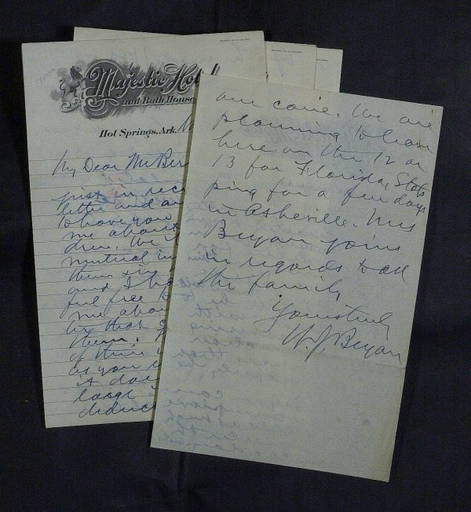 Majestic Hotel
and Bath House
Hot Springs, Ark.
My Dear Mr Ber
just in rec
letter and an
to have you
me about
dren. We
mutual in
them
and I ho
ful free to
me abou
by that I
them.
of them
as you
it doe
large
deduc
our care. We are
planning to leave
here on the 12 or
13 for Florida, stop
ping for a few days
in Asheville. Mrs
Bryan joins
in regards to all
the family
Yours truly
W J Bryan